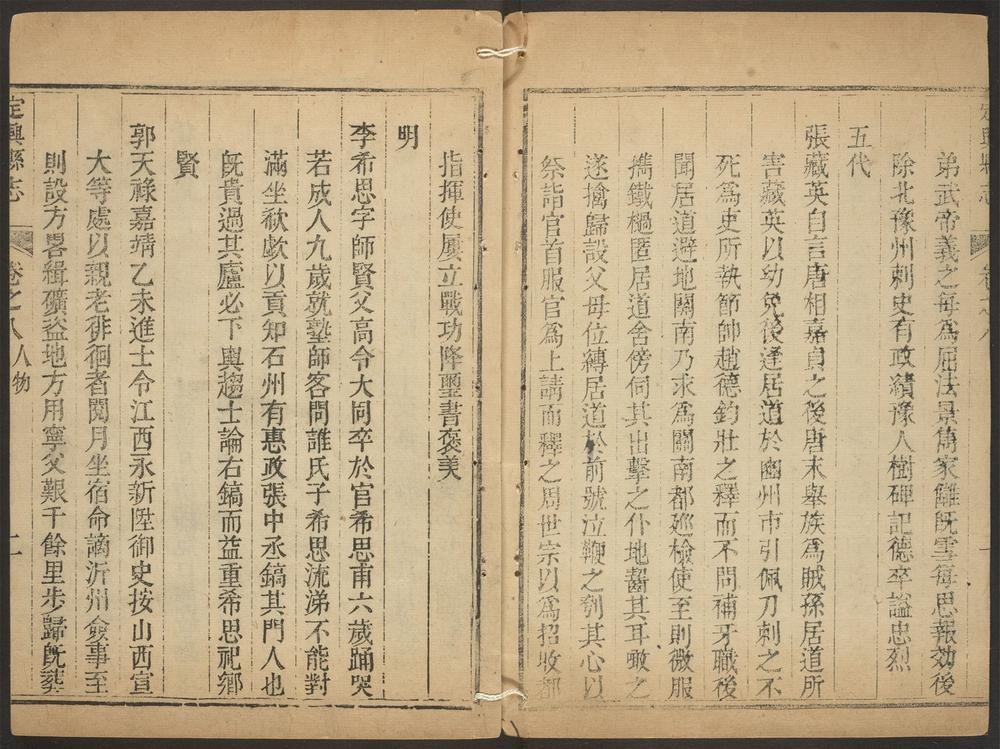 定興縣志
卷之八
一
弟武帝義之每為屈法景雋家讎既雪每思報効後
除北豫州刺史有政績豫人樹碑記德卒謚忠烈
五代
張藏英自言唐相嘉貞之後唐末舉族為賊孫居道所
害藏英以幼免後逢居道於幽州市引佩刀刺之不
死為吏所執節帥趙德鈞壯之釋而不問補牙職後
聞居道避地關南乃求為關南都廵檢使至則微服
携鐵檛匿居道舍傍伺其出擊之仆地齧其耳噉之
遂擒歸設父母位縳居道於前號泣鞭之刳其心以
祭詣官首服官為上請而釋之周世宗以為招收都
指揮使屢立戰功降璽書褒美
明
李希思字師賢父高令大同卒於官希思甫六歲踊哭
若成人九歲就塾師客問誰氏子希思流涕不能對
滿坐欷歔以貢知石州有惠政張中丞鎬其門人也
旣貴過其廬必下輿趨士論右鎬而益重希思祀鄉
賢
郭天祿嘉靖乙未進士令江西永新陞御史按山西宣
大等處以親老徘徊者閱月坐宿命謫沂州僉事至
則設方畧緝礦盗地方用寧父艱千餘里步歸旣葬
定興縣志
卷之八人物
二